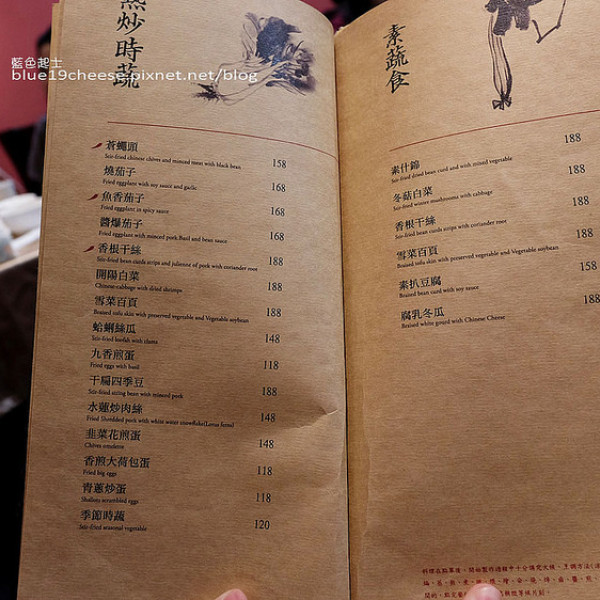 熱炒時蔬
藍色起士
blue19cheese.pixnet.net/blog
蒼蠅頭 158
Stir-fried chinese chives and minced meat with black bean
燒茄子 168
Fried eggplant with soy sauce and garlic
魚香茄子 168
Fried eggplant in spicy sauce
醬爆茄子 168
Fried eggplant with minced pork.Basil and bean sauce
香根干絲 188
Stir-fried bean curds strips and julienne of pork with coriander root
開陽白菜 188
Chinese cabbage with dried shrimps
雪菜百頁 188
Braised tofu skin with preserved vegetable and Vegetable soybean
蛤蜊絲瓜 148
Stir-fried loofah with clams
九香煎蛋 118
Fried eggs with basil
干扁四季豆 188
Stir-fried string bean with minced pork
水蓮炒肉絲 148
Fried Shredded pork with white water snowflake(Lotus ferns)
韭菜花煎蛋 148
Chives omelette
香煎大荷包蛋 118
Fried big eggs
青蔥炒蛋 118
Shallots scrambled eggs
季節時蔬 120
Stir-fried seasonal vegetable
素蔬食
素什錦 188
Stir-fried dried bean curd and with mixed vegetable
冬菇白菜 188
Stir-fried winter mushrooms with cabbage
香根干絲 188
Stir-fried bean curds strips with coriander root
雪菜百頁 188
Braised tofu skin with preserved vegetable and Vegetable soybean
素扒豆腐 158
Braised bean curd with soy sauce
腐乳冬瓜 188
Braised white gourd with Chinese Cheese